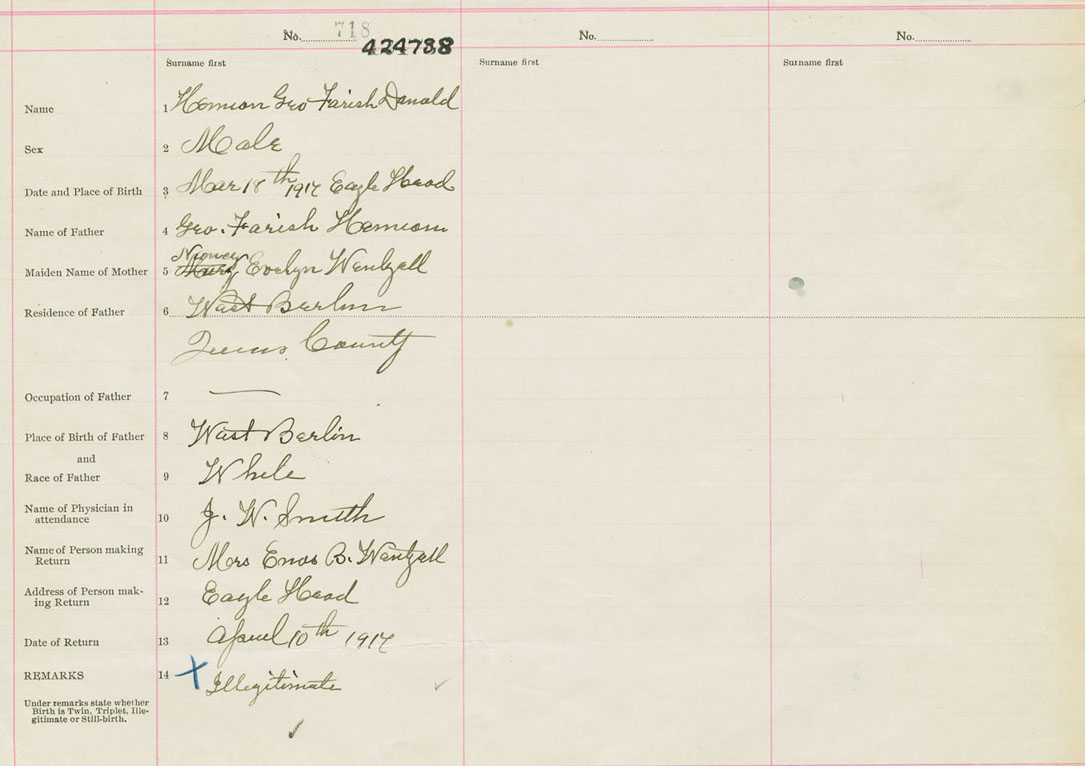 No. 718 No. No.
424788
Surname first Surname first Surname first
Name 1 Hemeon Geo Farish Donald
Sex 2 Male
Date and Place of Birth 3 Mar 18th 1914 Eagle Head
Name of Father 4 Geo. Farish Hemeon
Maiden Name of Mother 5 Evelyn Wentzell
Residence of Father 6 West Berlin
Queens County
Occupation of Father 7 —
Place of Birth of Father 8 West Berlin
and
Race of Father 9 While
Name of Physician in
attendance 10 J. W. Smith
Name of Person making
Return 11 Mrs Enos B. Wentzell
Address of Person mak-
ing Return 12 Eagle Head
Date of Return 13 April 10th 1914
REMARKS 14 Illegitimate
Under remarks state whether
Birth is Twin, Triplet, Ille-
gitimate or Still-birth.